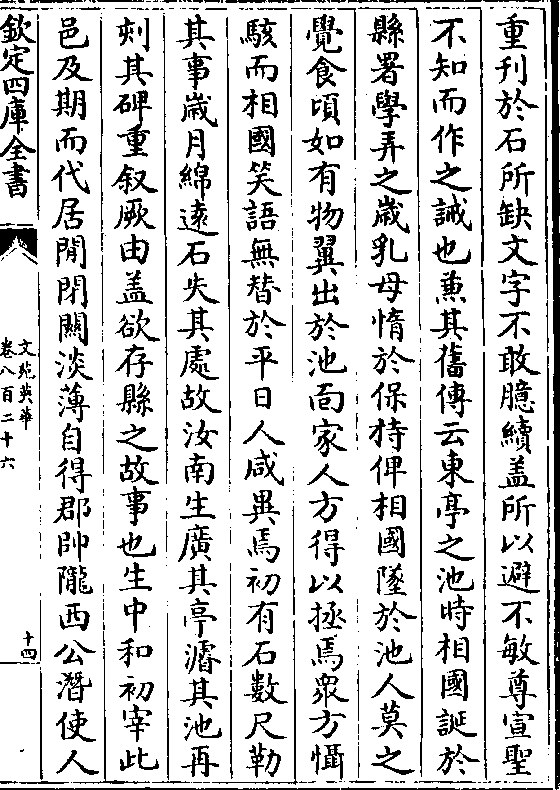 重刊於石所缺文字不敢臆續盖所以避不敏尊宣聖
不知而作之誡也兼其舊傳云東亭之池時相國誕於
縣署學弄之歲乳母惰於保持俾相國墜於池人莫之
覺食頃如有物翼出於池靣家人方得以拯焉衆方懾
駭而相國笑語無替於平日人咸異焉初有石數尺勒
其事歲月綿逺石失其處故汝南生廣其亭濬其池再
刻其碑重叙厥由盖欲存縣之故事也生中和初宰此
邑及期而代居閒閉關淡薄自得郡帥隴西公潛使人
欽定四庫全書
文苑英華
卷八百二十六
十四